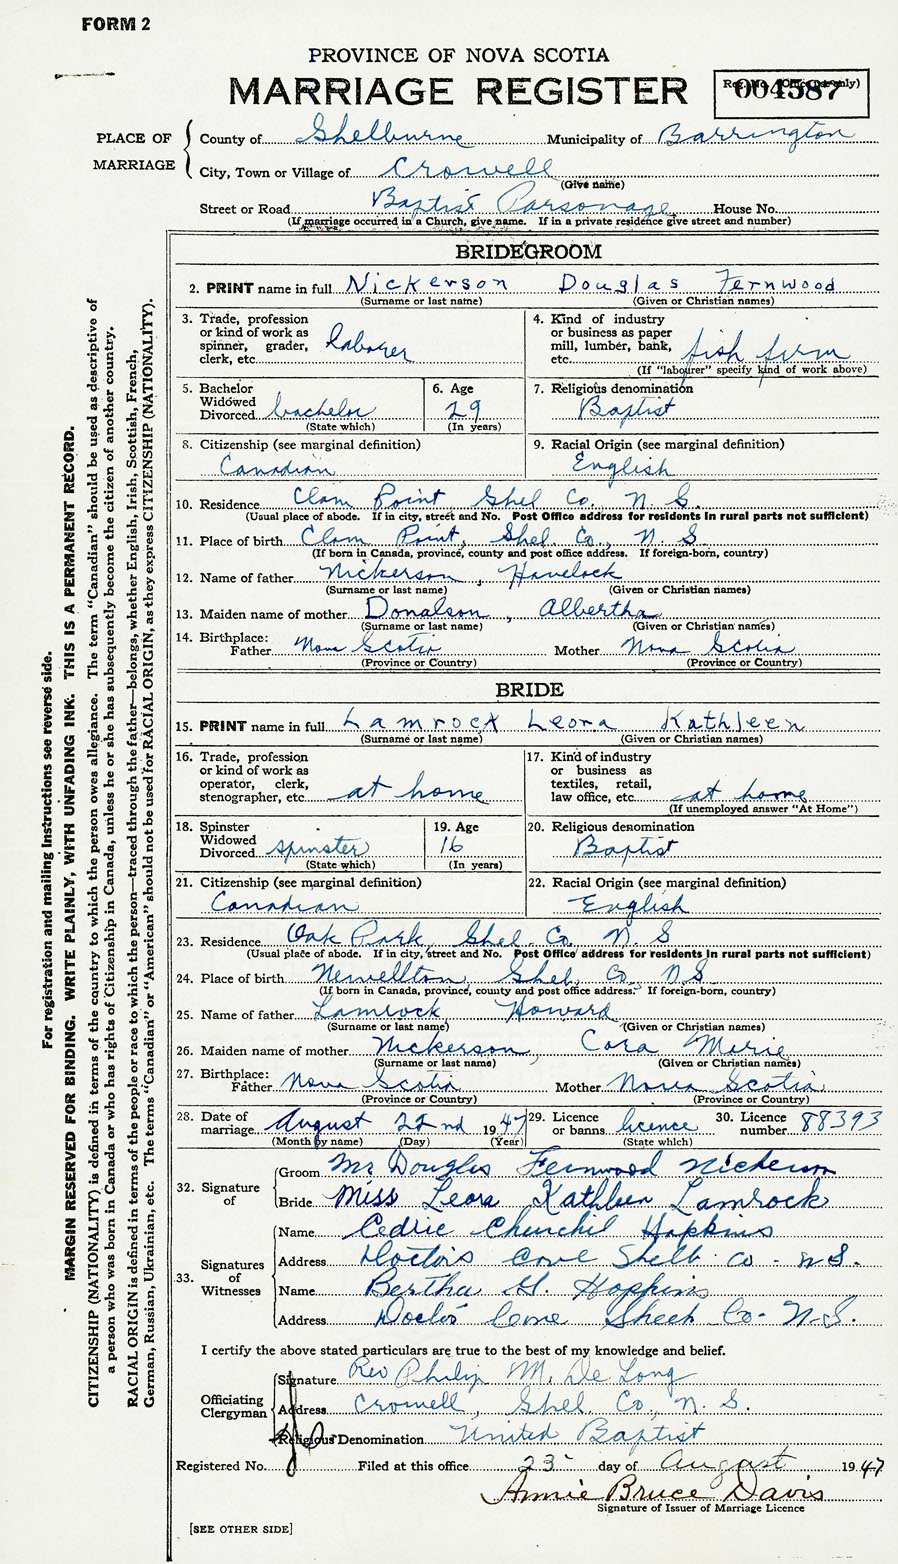 FORM 2
PROVINCE OF NOVA SCOTIA
MARRIAGE REGISTER
Reg. No. (Office use only)
004587
PLACE OF MARRIAGE
County of Shelburne Municipality of Barrington
City, Town or Village of Crowell
(Give name)
Street or Road Baptist Parsonage House No.
(If marriage occurred in a Church, give name. If in a private residence give street and number)
BRIDEGROOM
2. PRINT name in full Nickerson Douglas Fernwood
(Surname or last name) (Given or Christian names)
3. Trade, profession or kind of work as spinner, grader, clerk, etc. laborer
4. Kind of industry or business as paper mill, lumber, bank, etc. fish firm
(If "labourer" specify kind of work above)
5. Bachelor Widowed Divorced bachelor
(State which)
6. Age 29
(In years)
7. Religious denomination
Baptist
8. Citizenship (see marginal definition)
Canadian
9. Racial Origin (see marginal definition)
English
10. Residence Clam Point Shel Co. N. S.
(Usual place of abode. If in city, street and No. Post Office address for residents in rural parts not sufficient)
11. Place of birth Clam Point, Shel Co., N. S.
(If born in Canada, province, county and post office address. If foreign-born, country)
12. Name of father Nickerson, Havelock
(Surname or last name) (Given or Christian names)
13. Maiden name of mother Donalson, Albertha
(Surname or last name) (Given or Christian names)
14. Birthplace:
Father Nova Scotia Mother Nova Scotia
(Province or Country) (Province or Country)
BRIDE
15. PRINT name in full Lamrock Leora Kathleen
(Surname or last name) (Given or Christian names)
16. Trade, profession or kind of work as operator, clerk, stenographer, etc. at home
17. Kind of industry or business as textiles, retail, law office, etc. at home
(If unemployed answer "At Home")
18. Spinster Widowed Divorced spinster
(State which)
19. Age 16
(In years)
20. Religious denomination
Baptist
21. Citizenship (see marginal definition)
Canadian
22. Racial Origin (see marginal definition)
English
23. Residence Oak Park, Shel. Co. N. S
(Usual place of abode. If in city, street and No. Post Office address for residents in rural parts not sufficient)
24. Place of birth Newellton, Shel. Co., N. S
(If born in Canada, province, county and post office address. If foreign-born, country)
25. Name of father Lamrock Howard
(Surname or last name) (Given or Christian names)
26. Maiden name of mother Nickerson, Cora Marie
(Surname or last name) (Given or Christian names)
27. Birthplace:
Father Nova Scotia Mother Nova Scotia
(Province or Country) (Province or Country)
28. Date of marriage August 22nd 1947
(Month by name) (Day) (Year)
29. Licence or banns licence
(State which)
30. Licence number 88393
32. Signature of
Groom Mr Douglas Fernwood Nickerson
Bride Miss Leora Kathleen Lamrock
33. Signatures of Witnesses
Name Cedric Churchil Hopkins
Address Doctors Cove Shelb. Co - N.S.
Name Bertha G. Hopkins
Address Doctors Cove Co- N.S.
I certify the above stated particulars are true to the best of my knowledge and belief.
Officiating Clergyman
Signature Rev Philip M. De Long
Address Crowell, Shel. Co., N. S.
Religious Denomination United Baptist
Registered No. Filed at this office 23 day of August 1947
Annie Bruce Davis
Signature of Issuer of Marriage Licence
[SEE OTHER SIDE]
For registration and mailing instructions see reverse side.
MARGIN RESERVED FOR BINDING. WRITE PLAINLY, WITH UNFADING INK. THIS IS A PERMANENT RECORD.
CITIZENSHIP (NATIONALITY) is defined in terms of the country to which the person owes allegiance. The term "Canadian" should be used as descriptive of
a person who was born in Canada or who has rights of Citizenship in Canada, unless he or she has subsequently become the citizen of another country.
RACIAL ORIGIN is defined in terms of the people or race to which the person—traced through the father—belongs, whether English, Irish, Scottish, French,
German, Russian, Ukrainian, etc. The terms "Canadian" or "American" should not be used for RACIAL ORIGIN, as they express CITIZENSHIP (NATIONALITY).